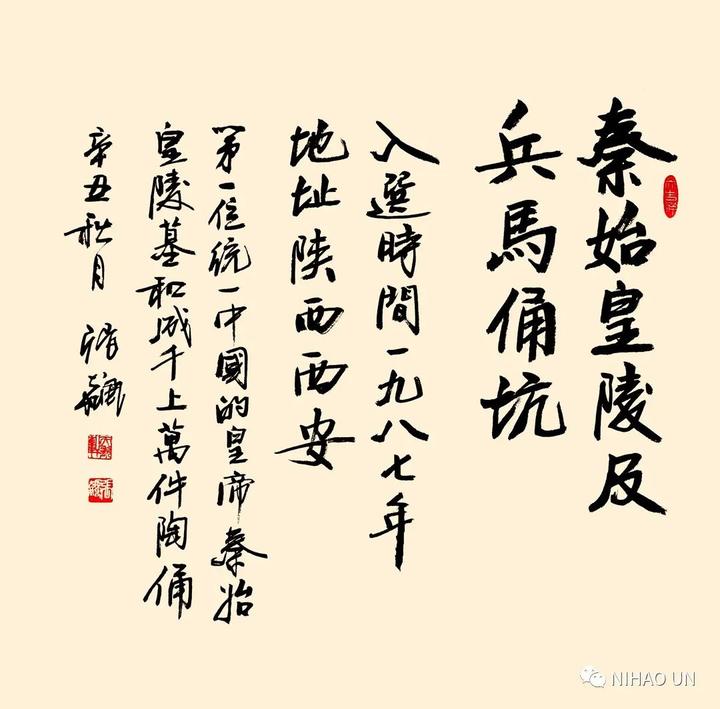 秦始皇陵及
兵馬俑坑
入選時間一九八七年
地址陝西西安
第一位統一中國的皇帝秦始
皇陵墓和成千上萬件陶俑
辛丑秋月
NIHAO UN